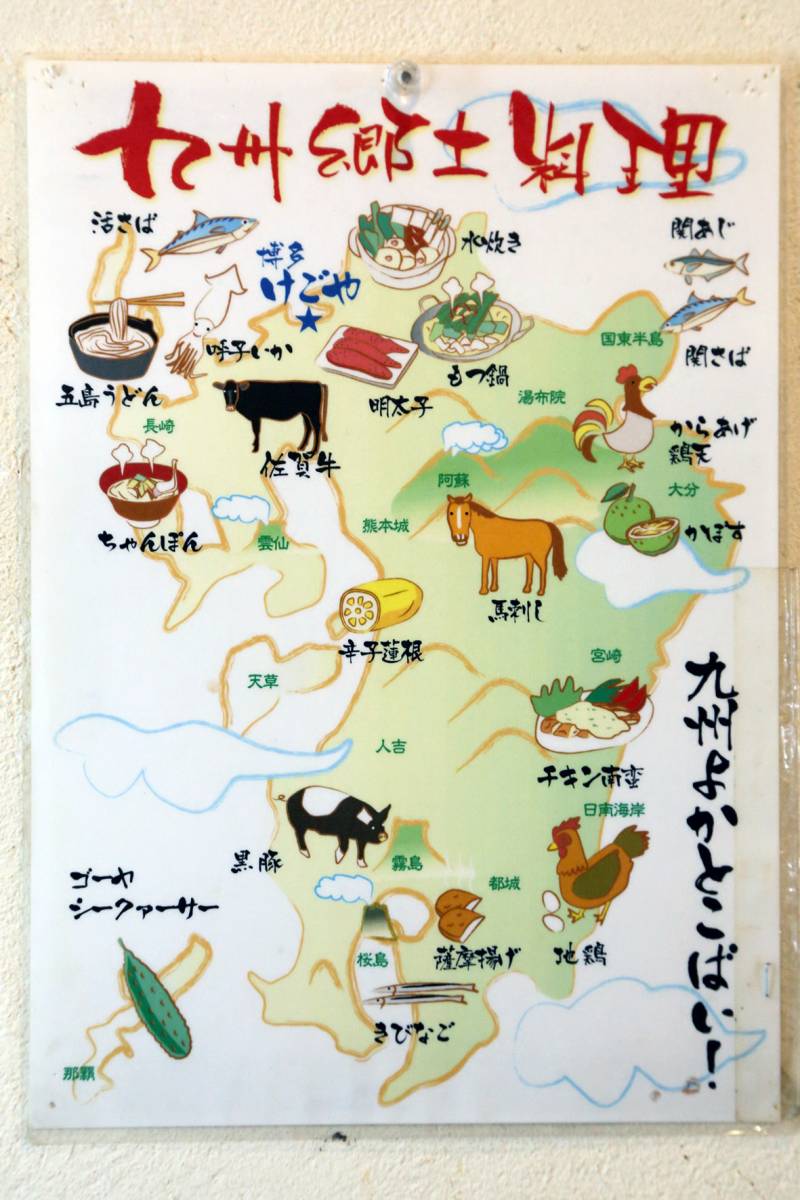 九州郷土料理
活さば
水炊き
関あじ
博多
けごや
呼子いか
国東半島
関さば
五島うどん
もつ鍋
明太子
湯布院
長崎
からあげ
鶏天
佐賀牛
阿蘇
大分
熊本城
かぼす
ちゃんぽん
雲仙
馬刺し
辛子蓮根
宮崎
天草
人吉
チキン南蛮
日南海岸
黒豚
霧島
都城
ゴーヤ
シークァーサー
桜島
薩摩揚げ
地鶏
きびなご
那覇
九州よかとこばい!